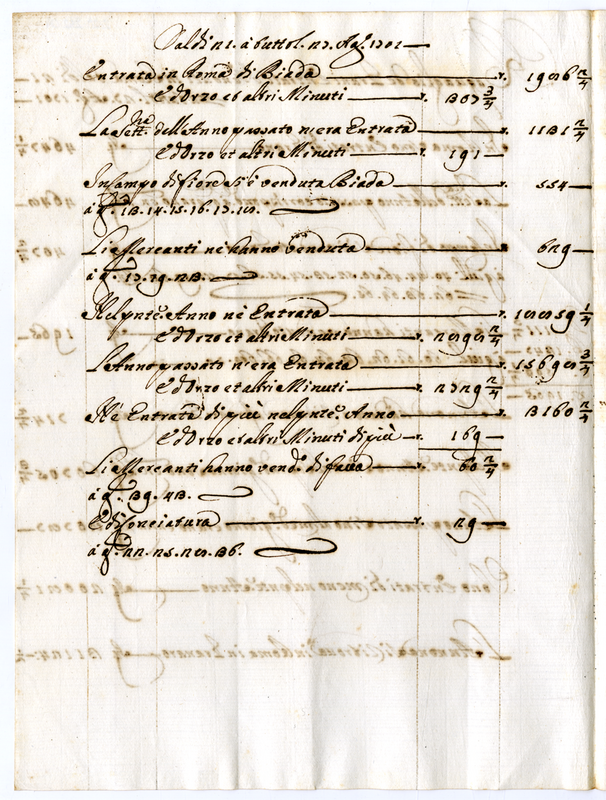 Dal dì 21. à tutto l. 27. Ag.º 1701 —
Entrata in Roma di Biada — r. 1986 2/4
E d'Orzo et altri Minuti — r. 307 3/4
La sett.na dell'Anno passato n'era Entrata — r. 1131 2/4
E d'Orzo et altri Minuti — r. 191 —
In Campo di fiore s'è venduta Biada — r. 554 —
à g. 13. 14. 15. 16. 17. 18.
Li Mercanti nè hanno venduta — 629 —
à g. 17. 19. 23.
Nel pnte. Anno nè Entrata — r. 18859 1/4
E d'Orzo et altri Minuti — r. 2898 2/4
L'Anno passato n'era Entrata — r. 15698 3/4
E d'Orzo et altri Minuti — r. 2729 2/4
Nè Entrata di più nel pnte. Anno — r. 3160 2/4
E d'Orzo et altri Minuti di più — r. 169 —
Li Mercanti hanno vend.º di fava — r. 60 2/4
à g. 39. 43.
E di Conciatura — r. 29 —
à g. 22. 25. 28. 36.